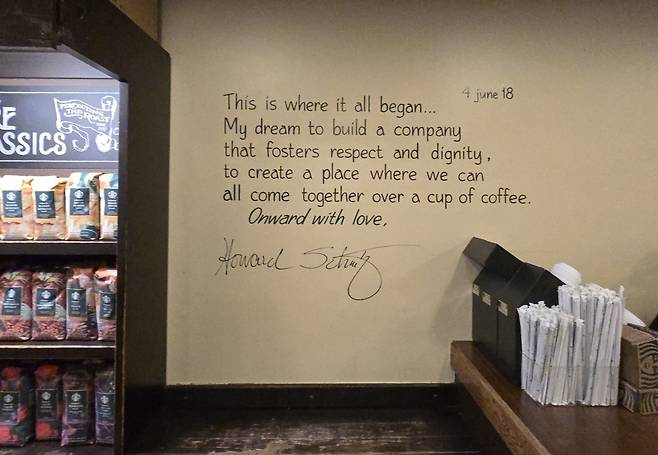 4 june 18
This is where it all began...
My dream to build a company
that fosters respect and dignity,
to create a place where we can
all come together over a cup of coffee.
Onward with love,
Howard Schultz
PERFECTING
THE ROAST
ASSICS